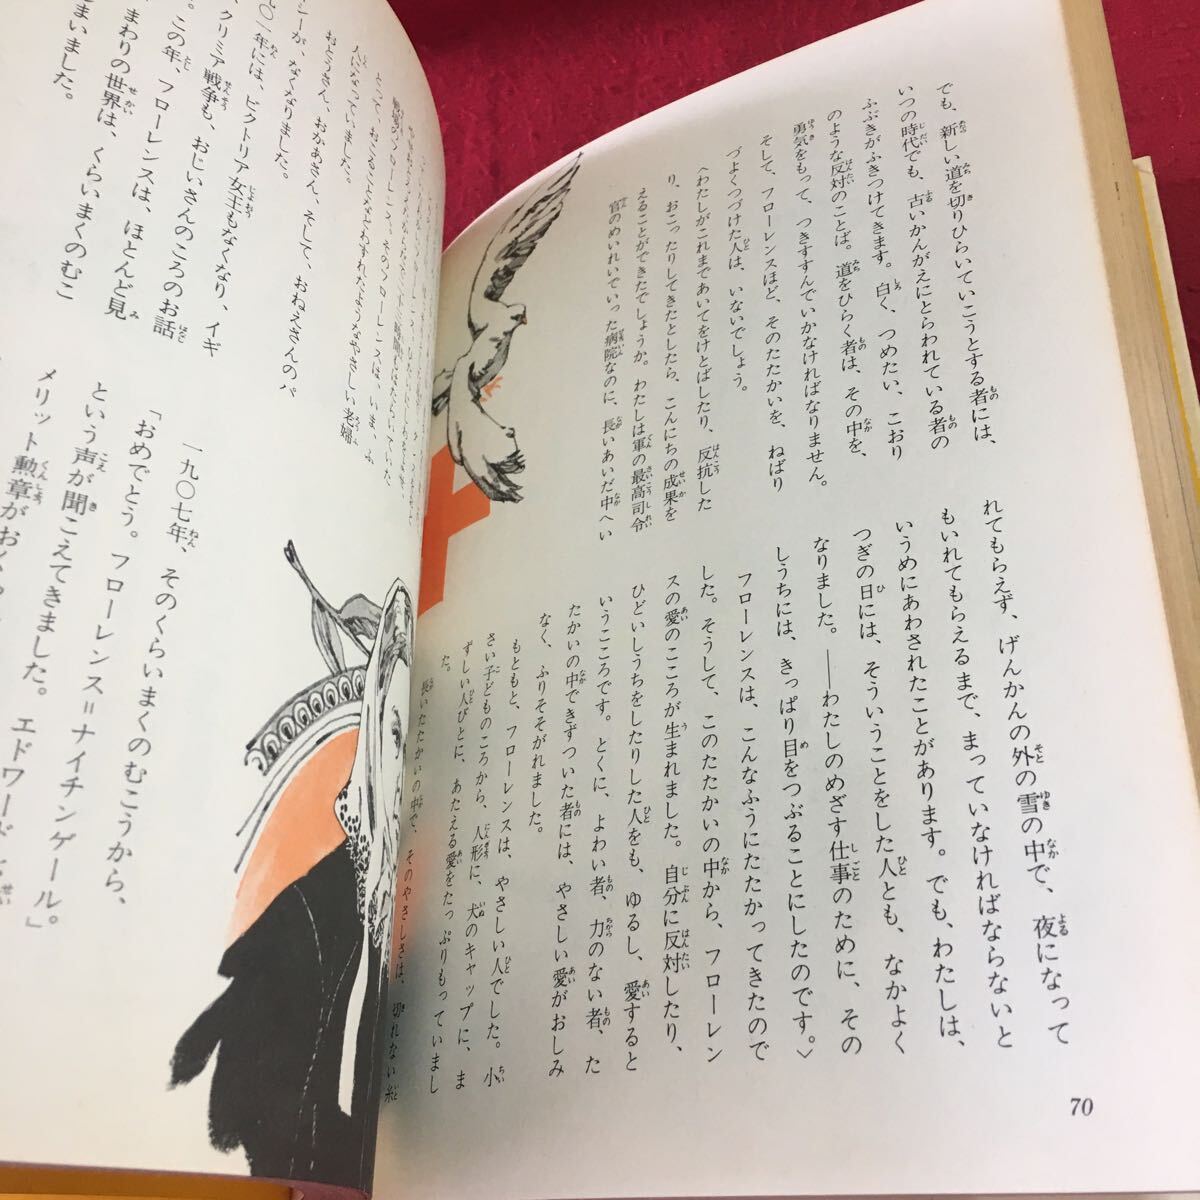 でも、新しい道を切りひらいていこうとする者には、
いつの時代でも、古いかんがえにとらわれている者の
ふぶきがふきつけてきます。白く、つめたい、こおり
のような反対のことば。道をひらく者は、その中を、
勇気をもって、つきすすんでいかなければなりません。
そして、フローレンスほど、そのたたかいを、ねばり
づよくつづけた人は、いないでしょう。
〈わたしがこれまであいてをけとばしたり、反抗した
り、おこったりしてきたとしたら、こんにちの成果を
えることができたでしょうか。わたしは軍の最高司令
官のめいれいでいった病院なのに、長いあいだ中へい
れてもらえず、げんかんの外の雪の中で、夜になって
もいれてもらえるまで、まっていなければならないと
いうめにあわされたことがあります。でも、わたしは、
つぎの日には、そういうことをした人とも、なかよく
なりました。――わたしのめざす仕事のために、その
しうちには、きっぱり目をつぶることにしたのです。〉
フローレンスは、こんなふうにたたかってきたので
した。そうして、このたたかいの中から、フローレン
スの愛のこころが生まれました。自分に反対したり、
ひどいしうちをしたりした人をも、ゆるし、愛すると
いうこころです。とくに、よわい者、力のない者、た
たかいの中できずついた者には、やさしい愛がおしみ
なく、ふりそそがれました。
もともと、フローレンスは、やさしい人でした。小
さい子どものころから、人形に、犬のキャップに、ま
ずしい人びとに、あたえる愛をたっぷりもっていまし
た。
長いたたかいの中で、そのやさしさは、切れない糸
70
とって、おこることなどわすれたようなやさしい老婦
人になっていました。
おとうさん、おかあさん、そして、おねえさんのパ
シーが、なくなりました。
九〇一年には、ビクトリア女王もなくなり、イギ
クリミア戦争も、おじいさんのころのお話
この年、フローレンスは、ほとんど見
まわりの世界は、くらいまくのむこ
しまいました。
一九〇七年、そのくらいまくのむこうから、
「おめでとう。フローレンス＝ナイチンゲール。」
という声が聞こえてきました。エドワード七世
メリット勲章がおく